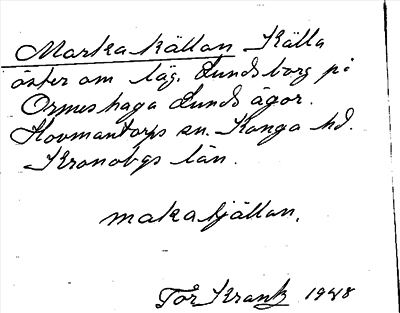 Marka källan Källa
öster om läg. Lundsborg på
Ormeshaga Lunds ägor.
Hovmantorps sn. Konga hd.
Kronobgs län.
makatjällan.
Tor Krank 1948